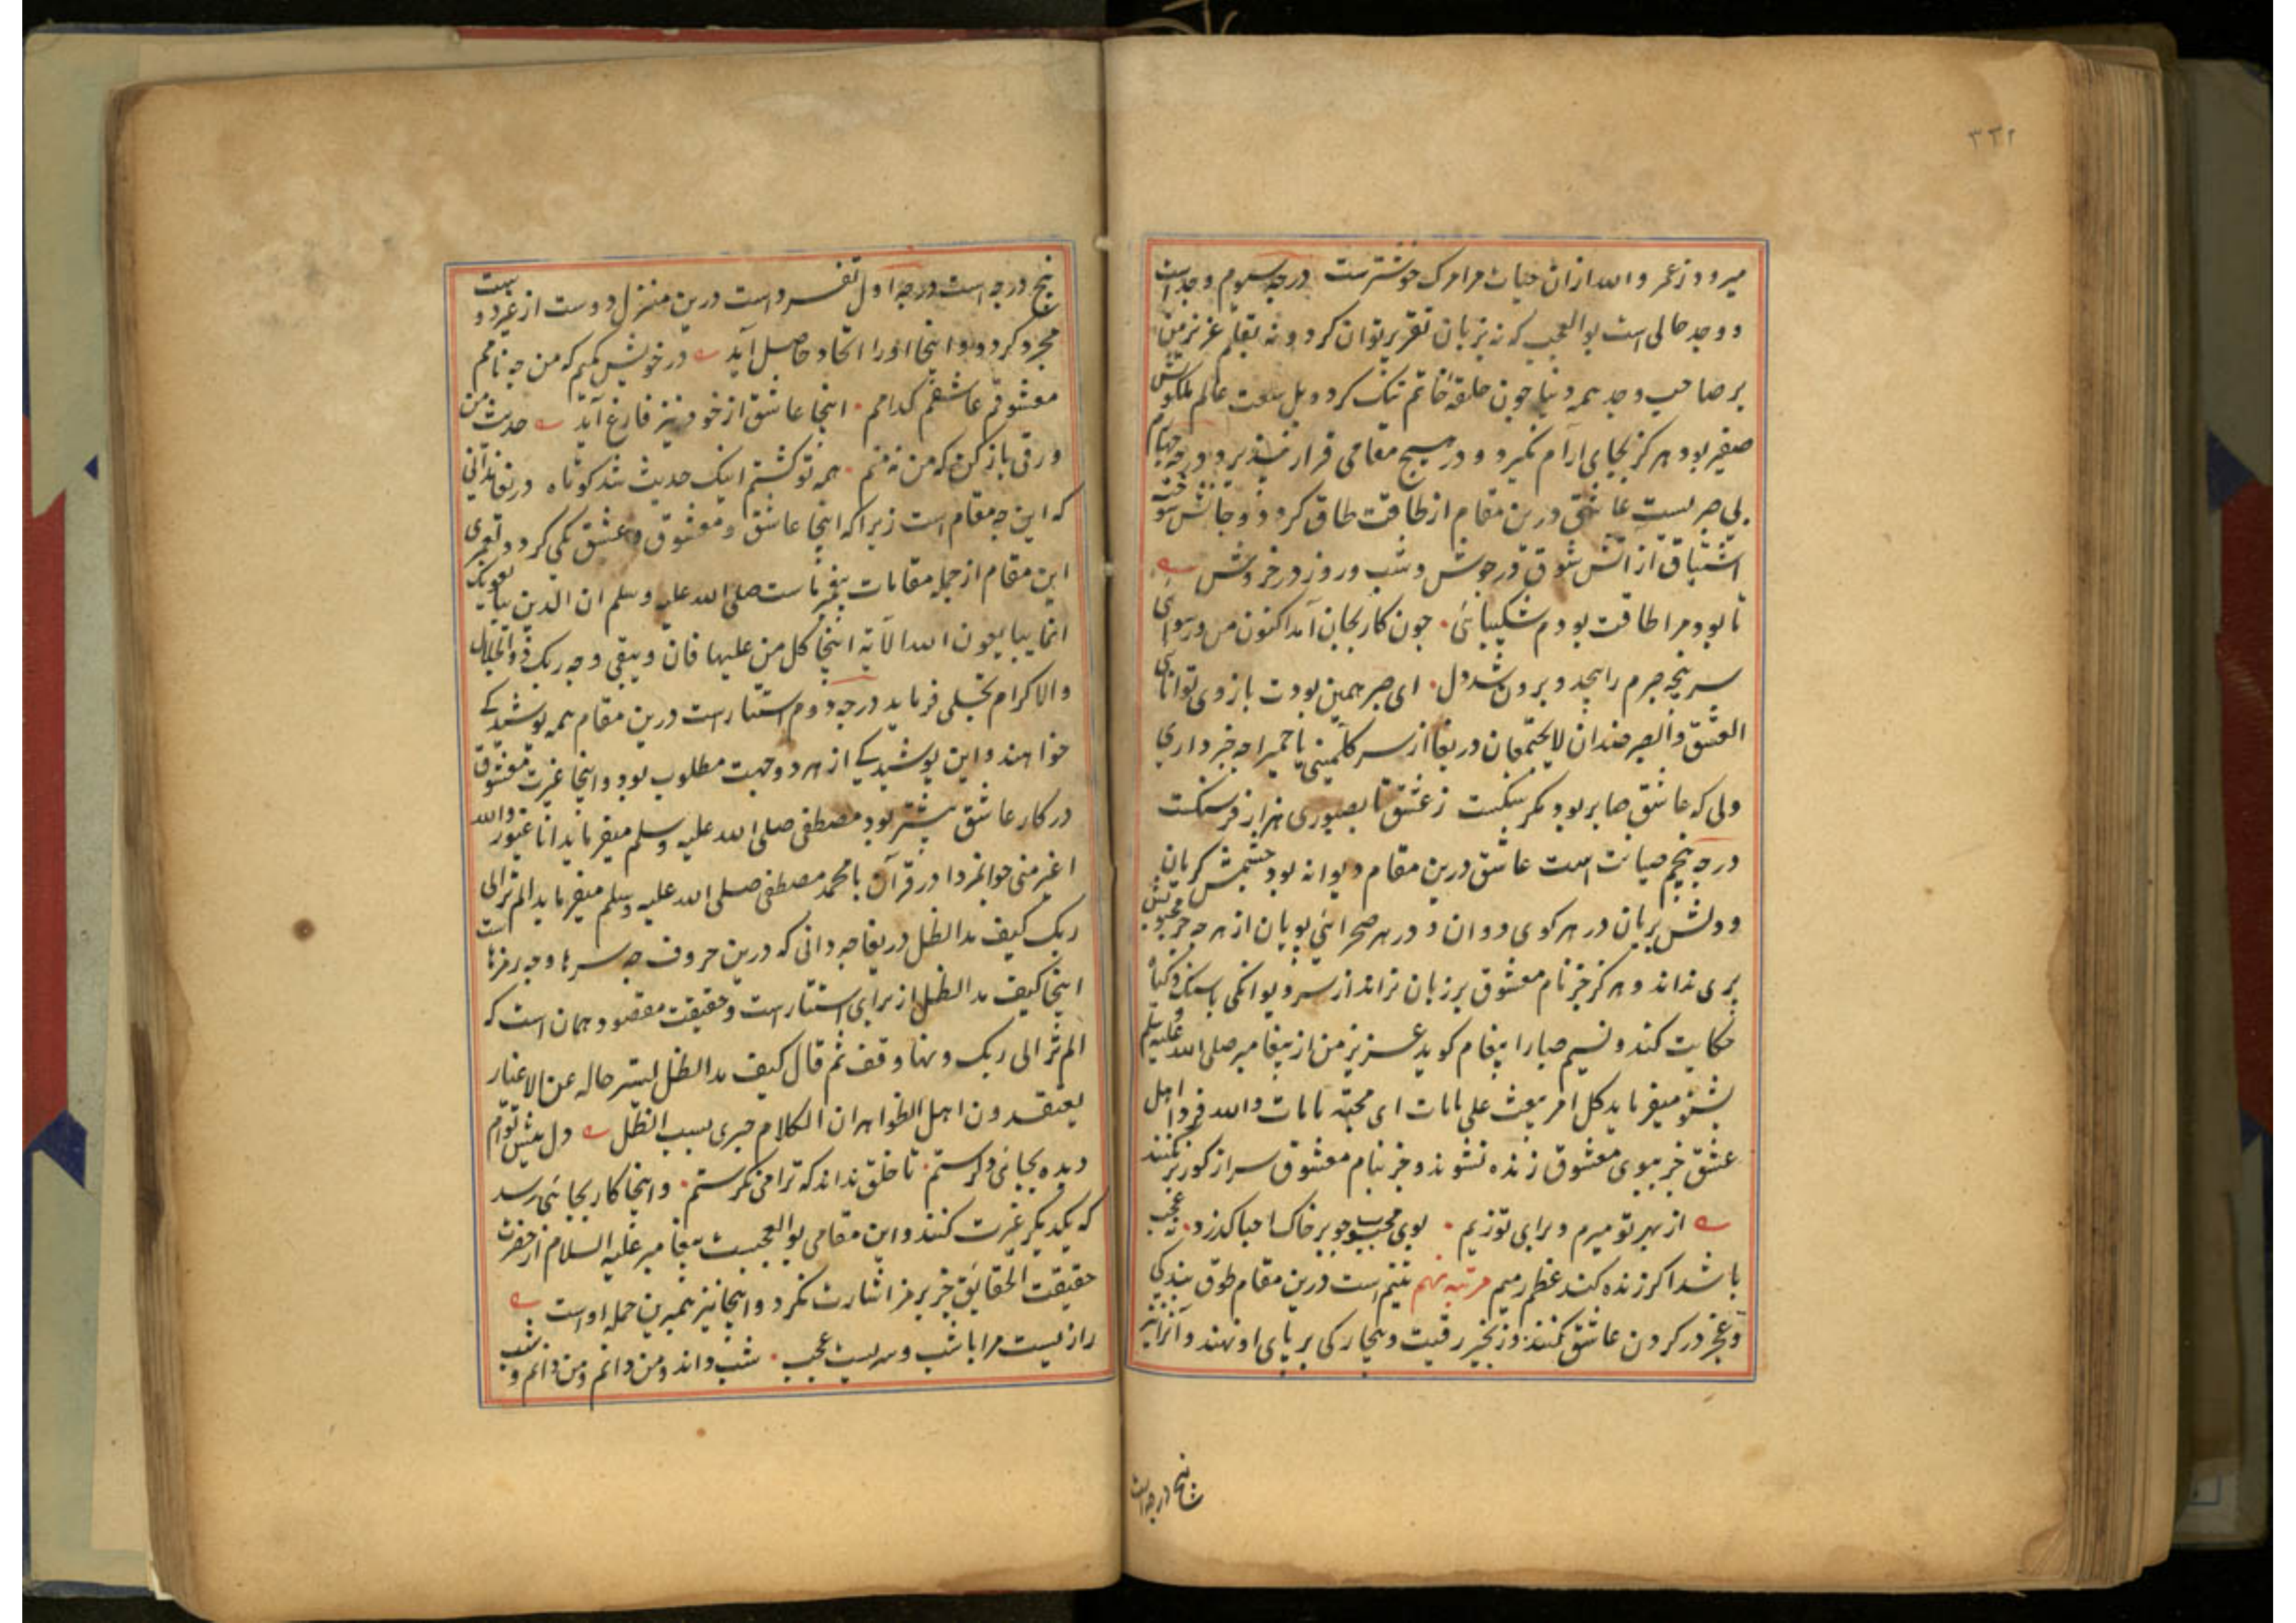 ۳۳۲
میرود ز عمر و الله ازان حیات مرا مرک خوشترست درجه سیوم وجد است
و وجد حالی است بو العجب که نه بزبان تقریر توان کرد و نه بقلم عزیز من
بر صاحب وجد همه دنیا چون حلقه خاتم تنک کردد بل سعت عالم ملکوتش
صغیر بود هرکز بجای آرام نکیرد و در هیچ مقامی قرار نپذیرد درجه چهارم
بی صبریست عاشق درین مقام از طاقت طاق کردد و جانش سوخته
اشتیاق از آتش شوق در جوش و شب و روز در خروش
تا بود مرا طاقت بودم شکیبائی چون کار بجان آمد اکنون من و رسوائی
سرپنجه صبرم را پیچد و برون شد دل ای صبر همین بودت بازوی توانائی
العشق والصبر ضدان لا یجتمعان دریغا از سر کلمینی یا حمیرا چه خبر داری
ولی که عاشق صابر بود مکر سنکست ز عشق تا بصبوری هزار فرسنکست
درجه پنجم صیانت است عاشق درین مقام دیوانه بود چشمش کریان
و دلش بریان در هر کوی دوان و در هر صحرائی پویان از هر چه جز محبوبش
بری نداند و هرکز جز نام معشوق بر زبان نراند از سر دیوانکی با سنک و کیاه
حکایت کند و نسیم صبا را پیغام کوید عزیز من از پیغامبر صلی الله علیه و سلم
بشنو میفرماید کل امر یبعث علی مامات ای محبته مامات والله فردا اهل
عشق جز ببوی معشوق زنده نشوند و جز بنام معشوق سر از کور بر نکنند
از بهر تو میرم و برای تو زیم بوی محبوب چو بر خاک احبا کذرد نه عجب
باشد اکر زنده کند عظم رمیم مرتبه نهم تتیم است درین مقام طوق بندکی
و عجز در کردن عاشق کنند و زنجیر رقیت و بیچارکی بر پای او نهند و آنرا نیز
پنج درجه است
پنج درجه است درجه اول تفرد است درین منزل دوست از غیر دوست
مجرد کردد و اینجا او را اتحاد حاصل آید در خویش کمم که من چه نامم
معشوقم عاشقم کدامم اینجا عاشق از خود نیز فارغ آید حدیث من
ورقی باز کن که من نه منم همه تو کشتم اینک حدیث شد کوتاه دریغا ندانی
که این چه مقام است زیرا که اینجا عاشق و معشوق و عشق یکی کردد و لعمری
این مقام از جمله مقامات پیغمبر ماست صلی الله علیه وسلم ان الذین یبایعونک
انما یبایعون الله الآیة اینجا کل من علیها فان ویبقی وجه ربک ذو الجلال
والاکرام تجلی فرماید درجه دوم استتار است درین مقام همه پوشیدکی
خواهند و این پوشیدکی از هر دو جهت مطلوب بود و اینجا غیرت معشوق
در کار عاشق بیشتر بود مصطفی صلی الله علیه وسلم میفرماید انا غیور والله
اغیر منی جوانمردا در قرآن با محمد مصطفی صلی الله علیه وسلم میفرماید الم تر الی
ربک کیف مد الظل دریغا چه دانی که درین حروف چه سرها و چه رمزهاست
اینجا کیف مد الظل از برای استتار است و حقیقت مقصود همان است که
الم تر الی ربک وهنا وقف ثم قال کیف مد الظل لیستر حاله عن الاغیار
یعتقدون اهل الظواهر ان الکلام جری بسبب الظل دل پیش توام
دیده بجائی دکرستم تا خلق نداند که ترا می نکرستم و اینجا کار بجائی رسد
که یکدیکر غیرت کنند و این مقامی بو العجبست پیغامبر علیه السلام از حضرت
حقیقت الحقایق جز برمز اشارت نکرد و اینجا نیز همبرین جمله اوست
رازیست مرا باشب و سریست عجب شب داند و من دانم و من دانم و شب